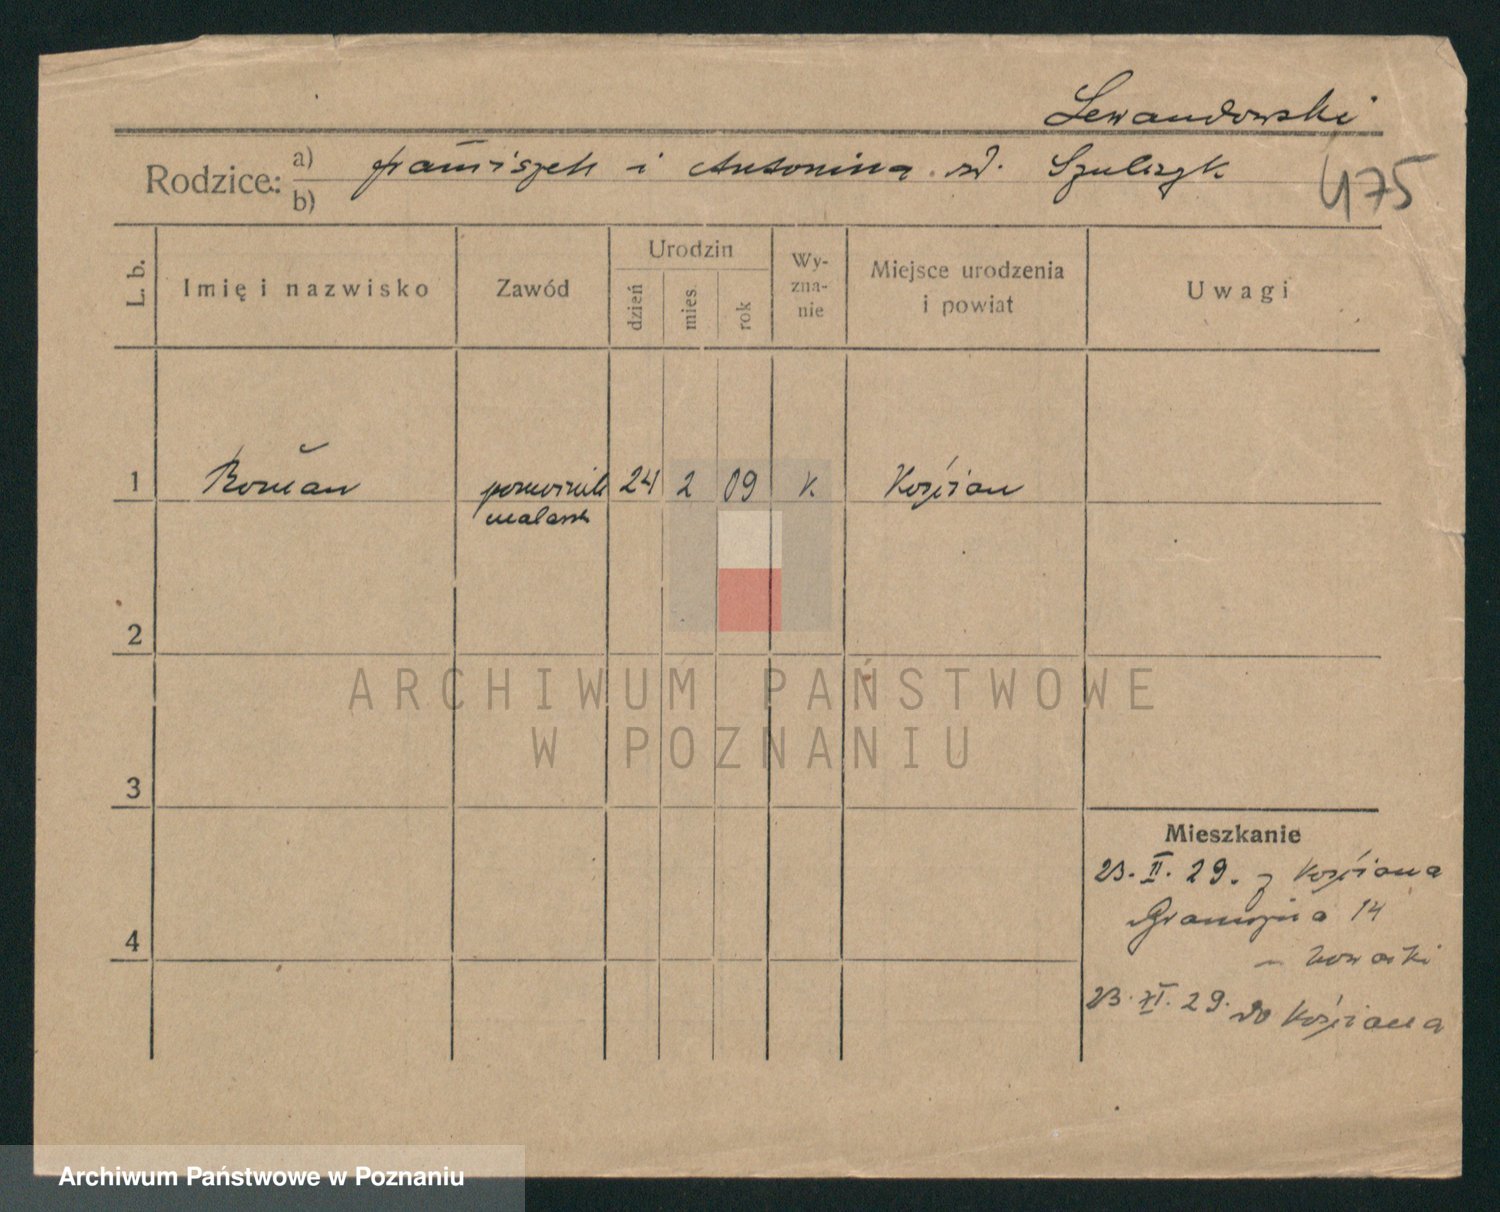 Lewandowski
Rodzice: a) Franciszek i Antonina zd. Szulczyk
b)
475
L. b.
Imię i nazwisko
Zawód
Urodzin
dzień
mies.
rok
Wy-
zna-
nie
Miejsce urodzenia
i powiat
Uwagi
1 Roman pomocnik 24 2 09 k. Kościan
malarsk
2
3
4
Mieszkanie
23. II. 29. z Kościana
14
23. XI. 29. do Kościana
ARCHIWUM PAŃSTWOWE
W POZNANIU
Archiwum Państwowe w Poznaniu